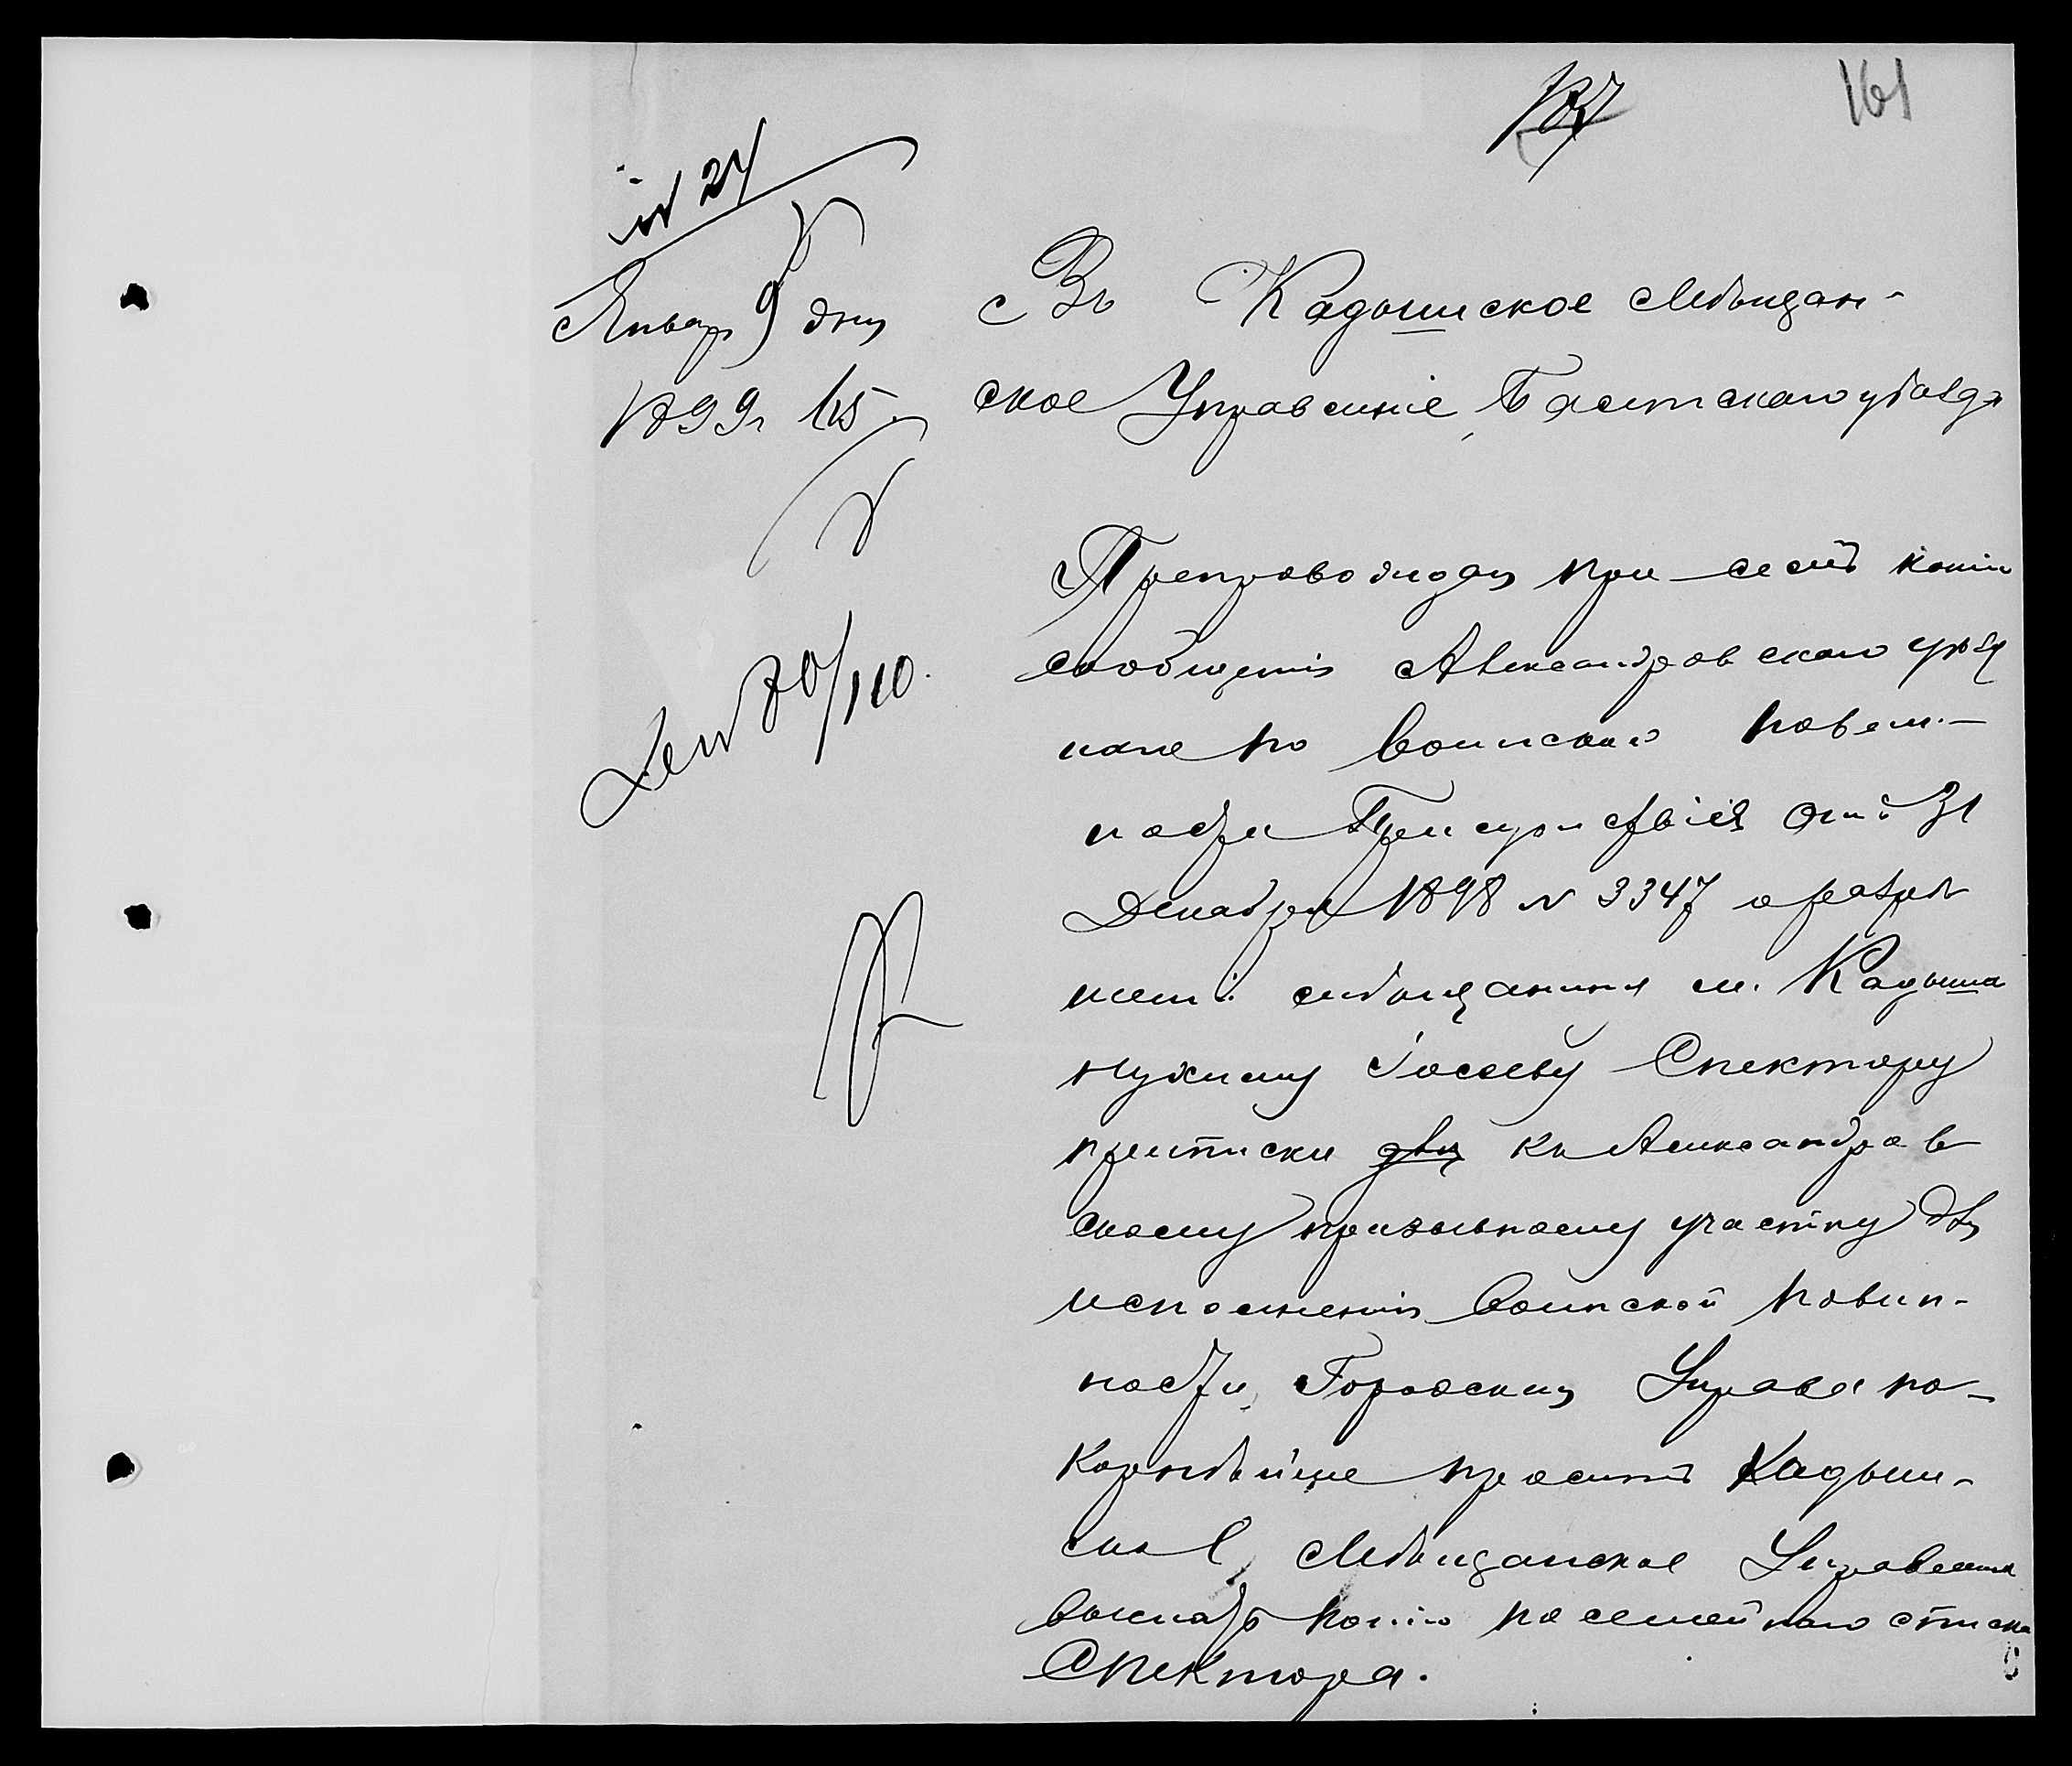 161
Январ 9 дня
1899 г 115
Въ Кадышское Мѣщан-
ское Управленіе, Балтскаго уѣзда
Препровождая при семъ копію
сообщенія Александровскаго уѣзд
наго по воинской повин-
ности Присутствія отъ 31
Декабря 1898 № 3347 о разрѣ
шеніи мѣщанина м. Кадыша
Нухиму Іосеву Спектору
приписки для къ Александров
скому призывному участку для
исполненія воинской повин-
ности, Городская Управа по-
корнѣйше проситъ Кадыш-
ское Мѣщанское Управленіе
выслать копію посемейнаго списка
Спектора.